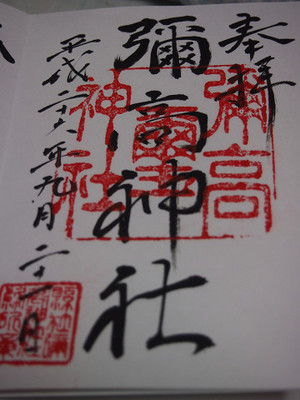 奉拝
彌高神社
平成二十六年九月二十一日
彌高
神社